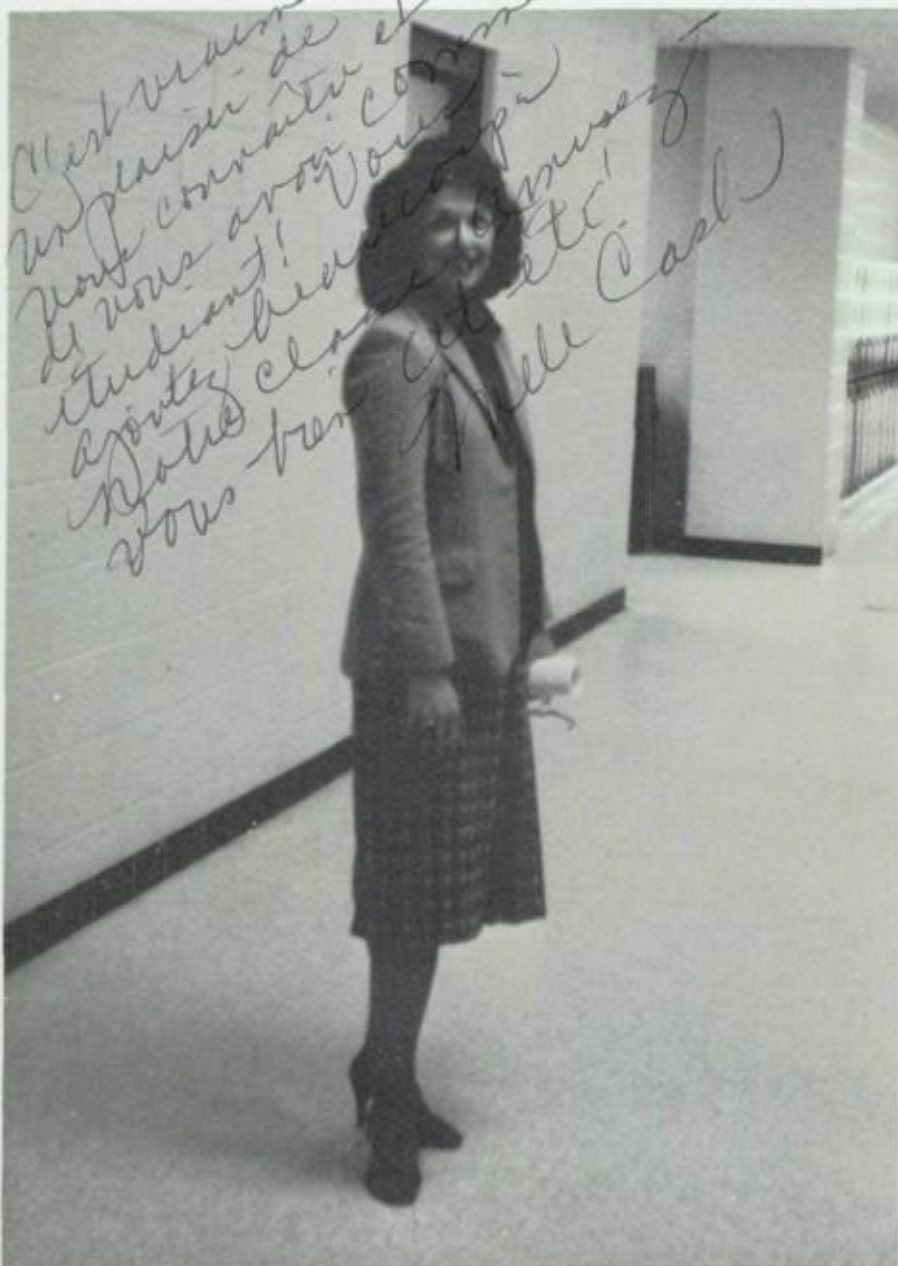 C'est vraiment
un plaisir de
vous connaître et
de vous avoir comme
étudiant! Vous
ajoutez beaucoup à
notre classe. Amusez-
vous bien cet été!
Mlle Cash